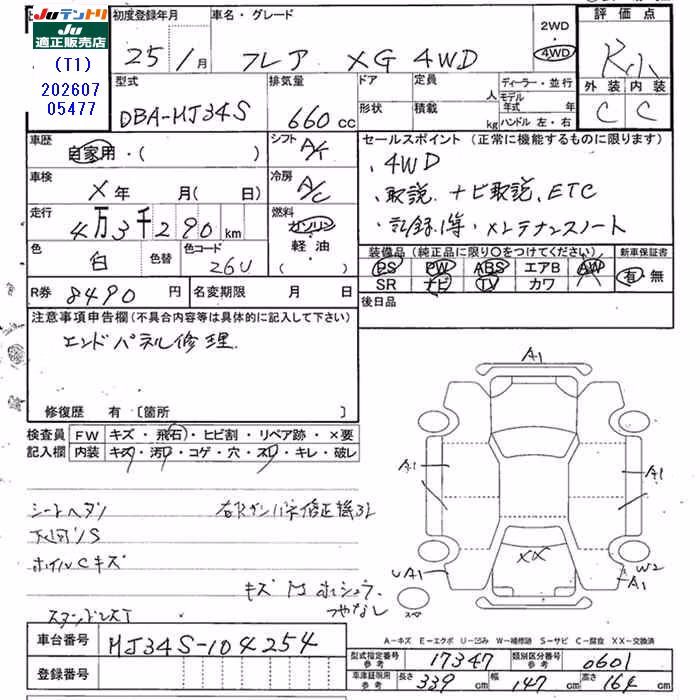 JUテントリ
JU
適正販売店
(T1)
202607
05477
初度登録年月
25年 1月
車名・グレード
フレア XG 4WD
2WD
4WD
評価点
外装 内装
C C
型式
DBA-HJ34S
排気量
660cc
ドア 定員 人
形状 積載 kg
ディーラー・並行
モデル年式 年
ハンドル 左・右
車歴
自家用・( )
シフト
冷房
A/C
車検
X年 月( 日)
走行
4万3千290km
燃料
ガソリン
軽油・
( )
色
白
色替
色コード
26U
セールスポイント (正常に機能するものに限ります)
・4WD
・取説、ナビ取説、ETC
・記録簿・メンテナンスノート
装備品(純正品に限り○をつけてください)
PS PW ABS エアB AW
SR ナビ TV カワ
新車保証書
有・無
後日品
R券 8490円
名変期限 月 日
注意事項申告欄(不具合内容等は具体的に記入して下さい)
エンドパネル修理
修復歴 有 [箇所 ]
検査員
記入欄
FW キズ・飛石・ヒビ割・リペア跡・×要
内装 キズ・汚・コゲ・穴・スレ・キレ・破レ
シートヘタリ
下回りS
ホイルCキズ
A1
A1
A1
XX
A1
W2
A1
スペア
A-キズ E-エクボ U-凹み W-補修跡 S-サビ C-腐食 XX-交換済
車台番号 HJ34S-104254
登録番号
型式指定番号
参考
17347
類別区分番号
参考
0601
車庫証明用
参考
長さ 339cm 幅 147cm 高さ 164cm